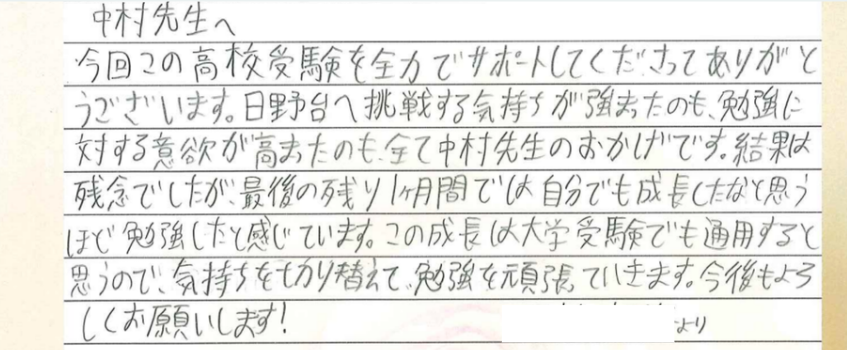 中村先生へ
今回この高校受験を全力でサポートしてくださってありがと
うございます。日野台へ挑戦する気持ちが強まったのも、勉強に
対する意欲が高まったのも、全て中村先生のおかげです。結果は
残念でしたが、最後の残り1ヶ月間では自分でも成長したなと思う
ほど勉強したと感じています。この成長は大学受験でも通用すると
思うので、気持ちを切り替えて、勉強を頑張っていきます。今後もよろ
しくお願いします!
より